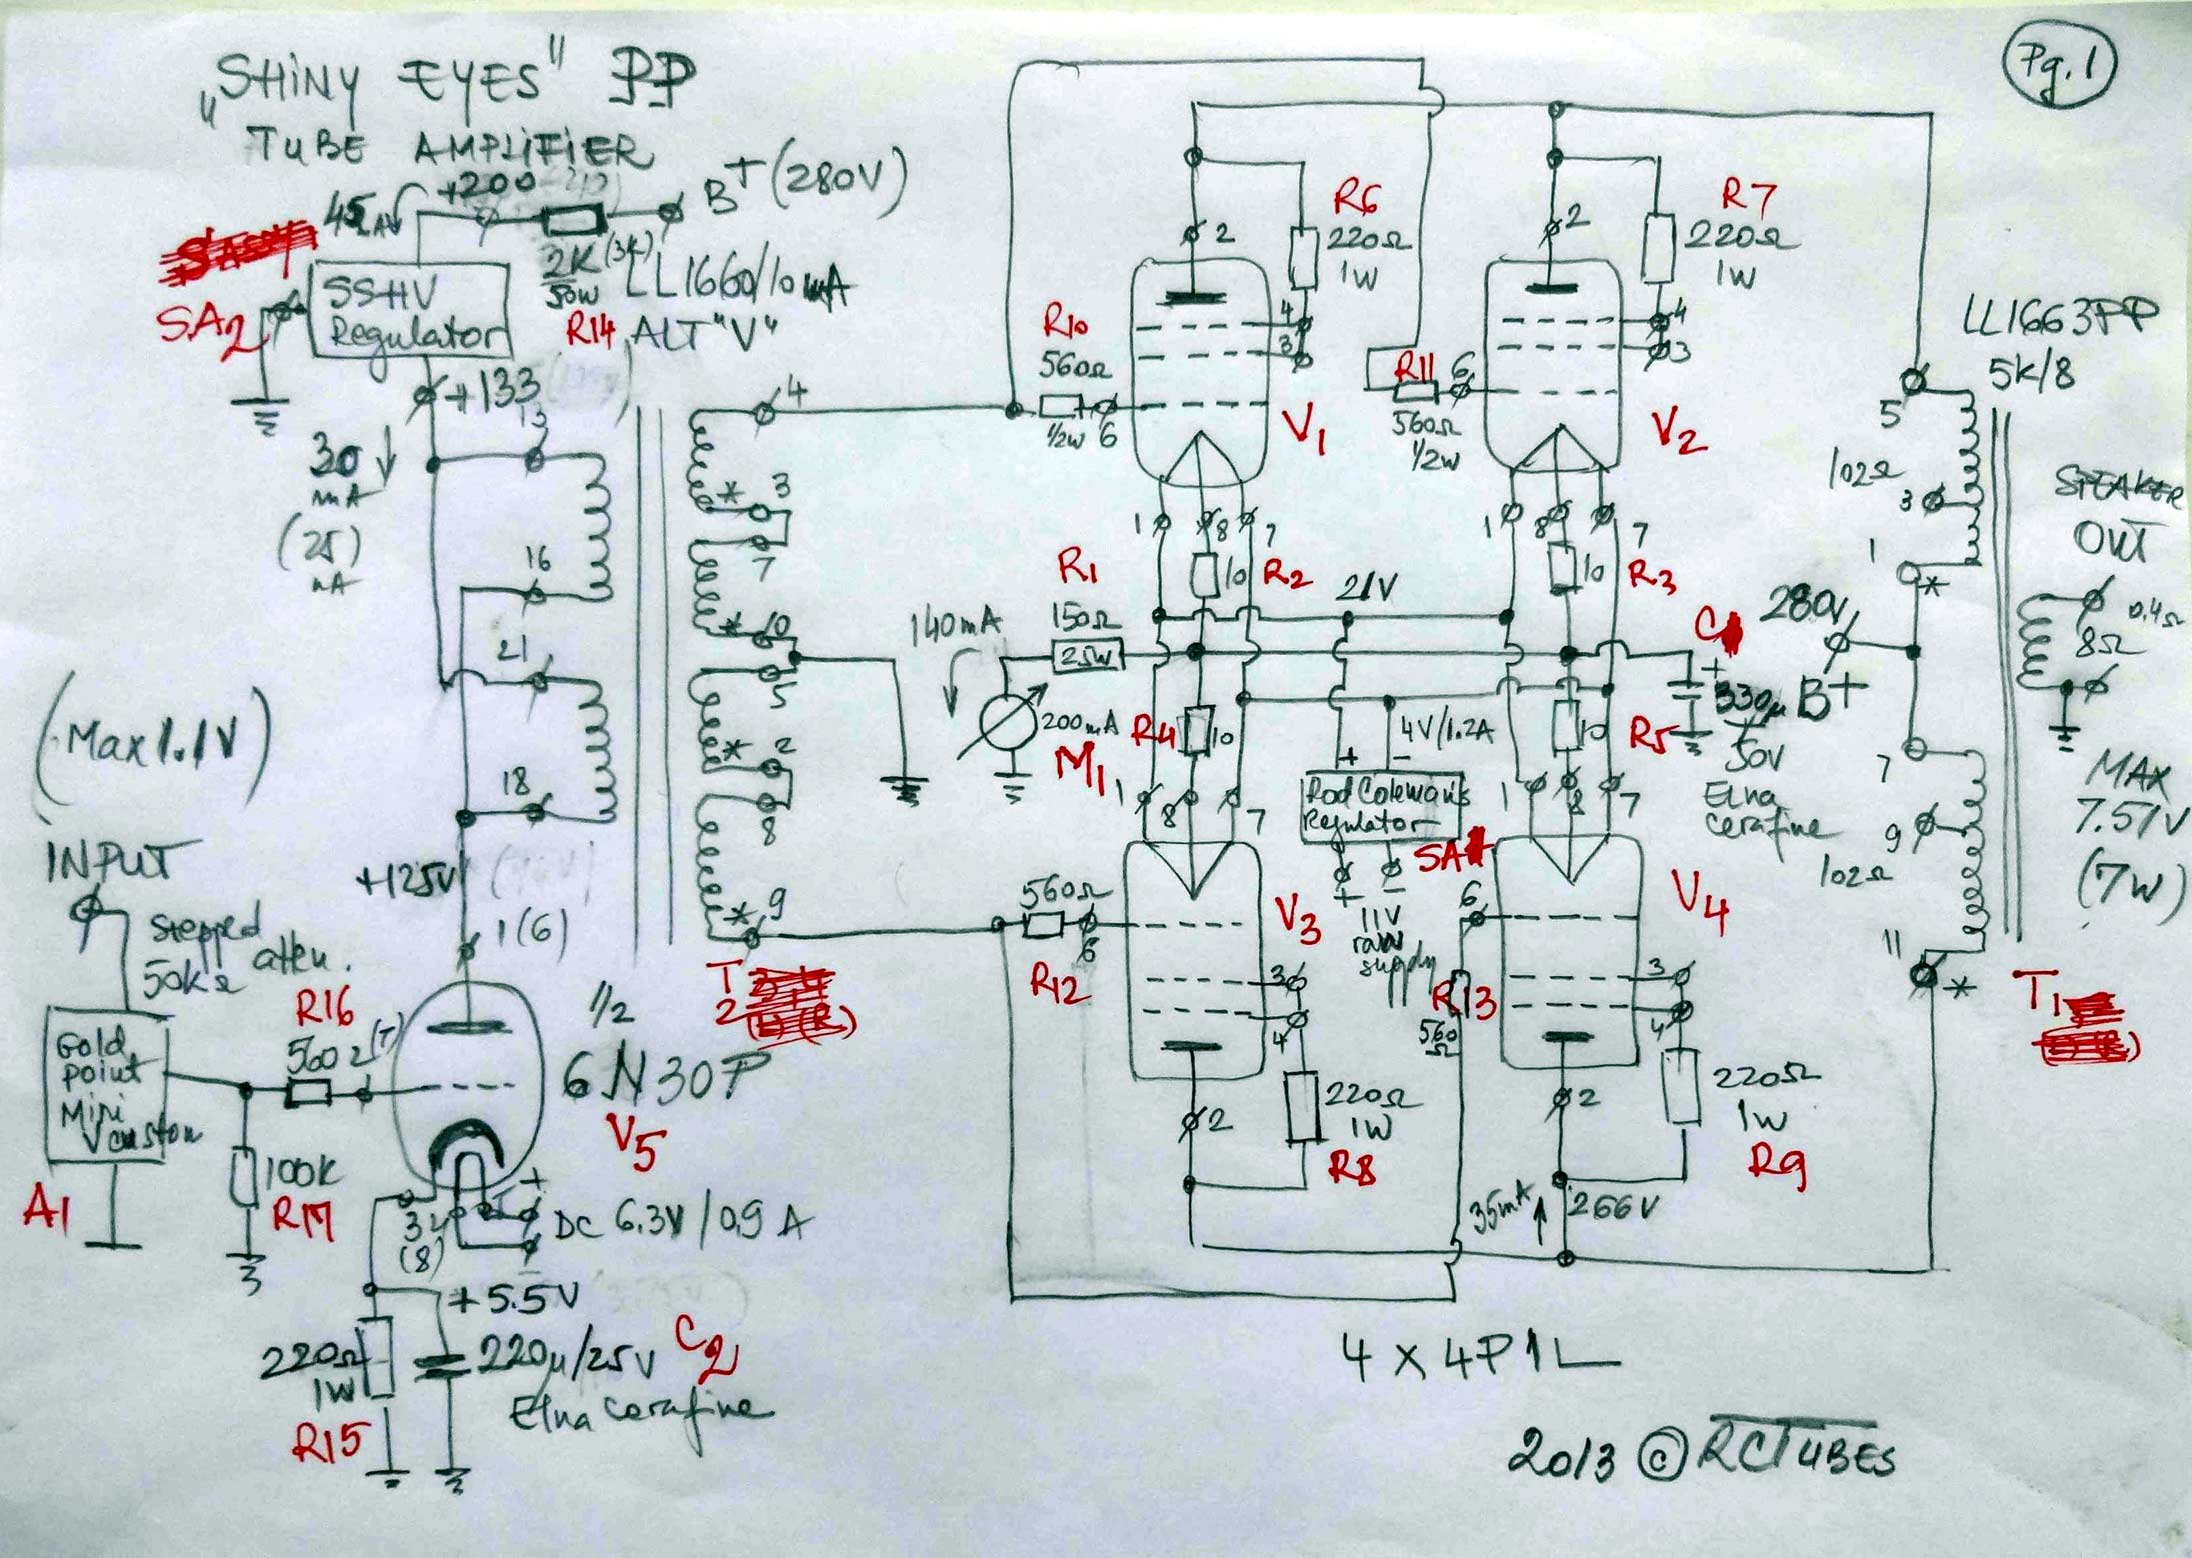 „SHINY EYES" PP
TUBE AMPLIFIER
Pg.1
+200
B+ (280V)
2K (3K)
50W
R14
LL1660/10mA
ALT "V"
SA2
SSHV
Regulator
+133
30
mA
(25)
13
16
21
18
+125V
1(6)
(Max 1.1V)
INPUT
Stepped
50kΩ atten.
Gold
point
Mini
V custom
A1
R16
560Ω
(7)
100K
R17
1/2
6N30P
V5
3
(8)
+
DC 6.3V/0.9A
-
+5.5V
220Ω
1W
R15
220µ/25V
C2
Elna Cerafine
4
* 3
7
* 10
5
* 2
8
* 9
T
2
R10
560Ω
1/2W
6
2
R6
220Ω
1W
4
3
V1
R11
6
560Ω
1/2W
2
R7
220Ω
1W
4
3
V2
1
8
7
10
R2
1
8
7
10
R3
R1
150Ω
25W
140mA
200mA
M1
21V
R4
10
4V/1.2A
10
R5
C
+
330µ
50V
Elna
Cerafine
+
-
Rod Coleman's
Regulator
SA
+
-
11V
raw
supply
1
8
7
1
8
7
560Ω
R12
6
V3
3
4
220Ω
1W
R8
2
6
R13
560
Ω
V4
3
4
220Ω
1W
R9
2
35mA
266V
LL1663PP
5K/8
5
102Ω
3
1
*
280V
B+
7
9
102Ω
11
*
T1
SPEAKER
OUT
0.4Ω
8Ω
MAX
7.57V
(7W)
4 x 4P1L
2013 © RCTUBES